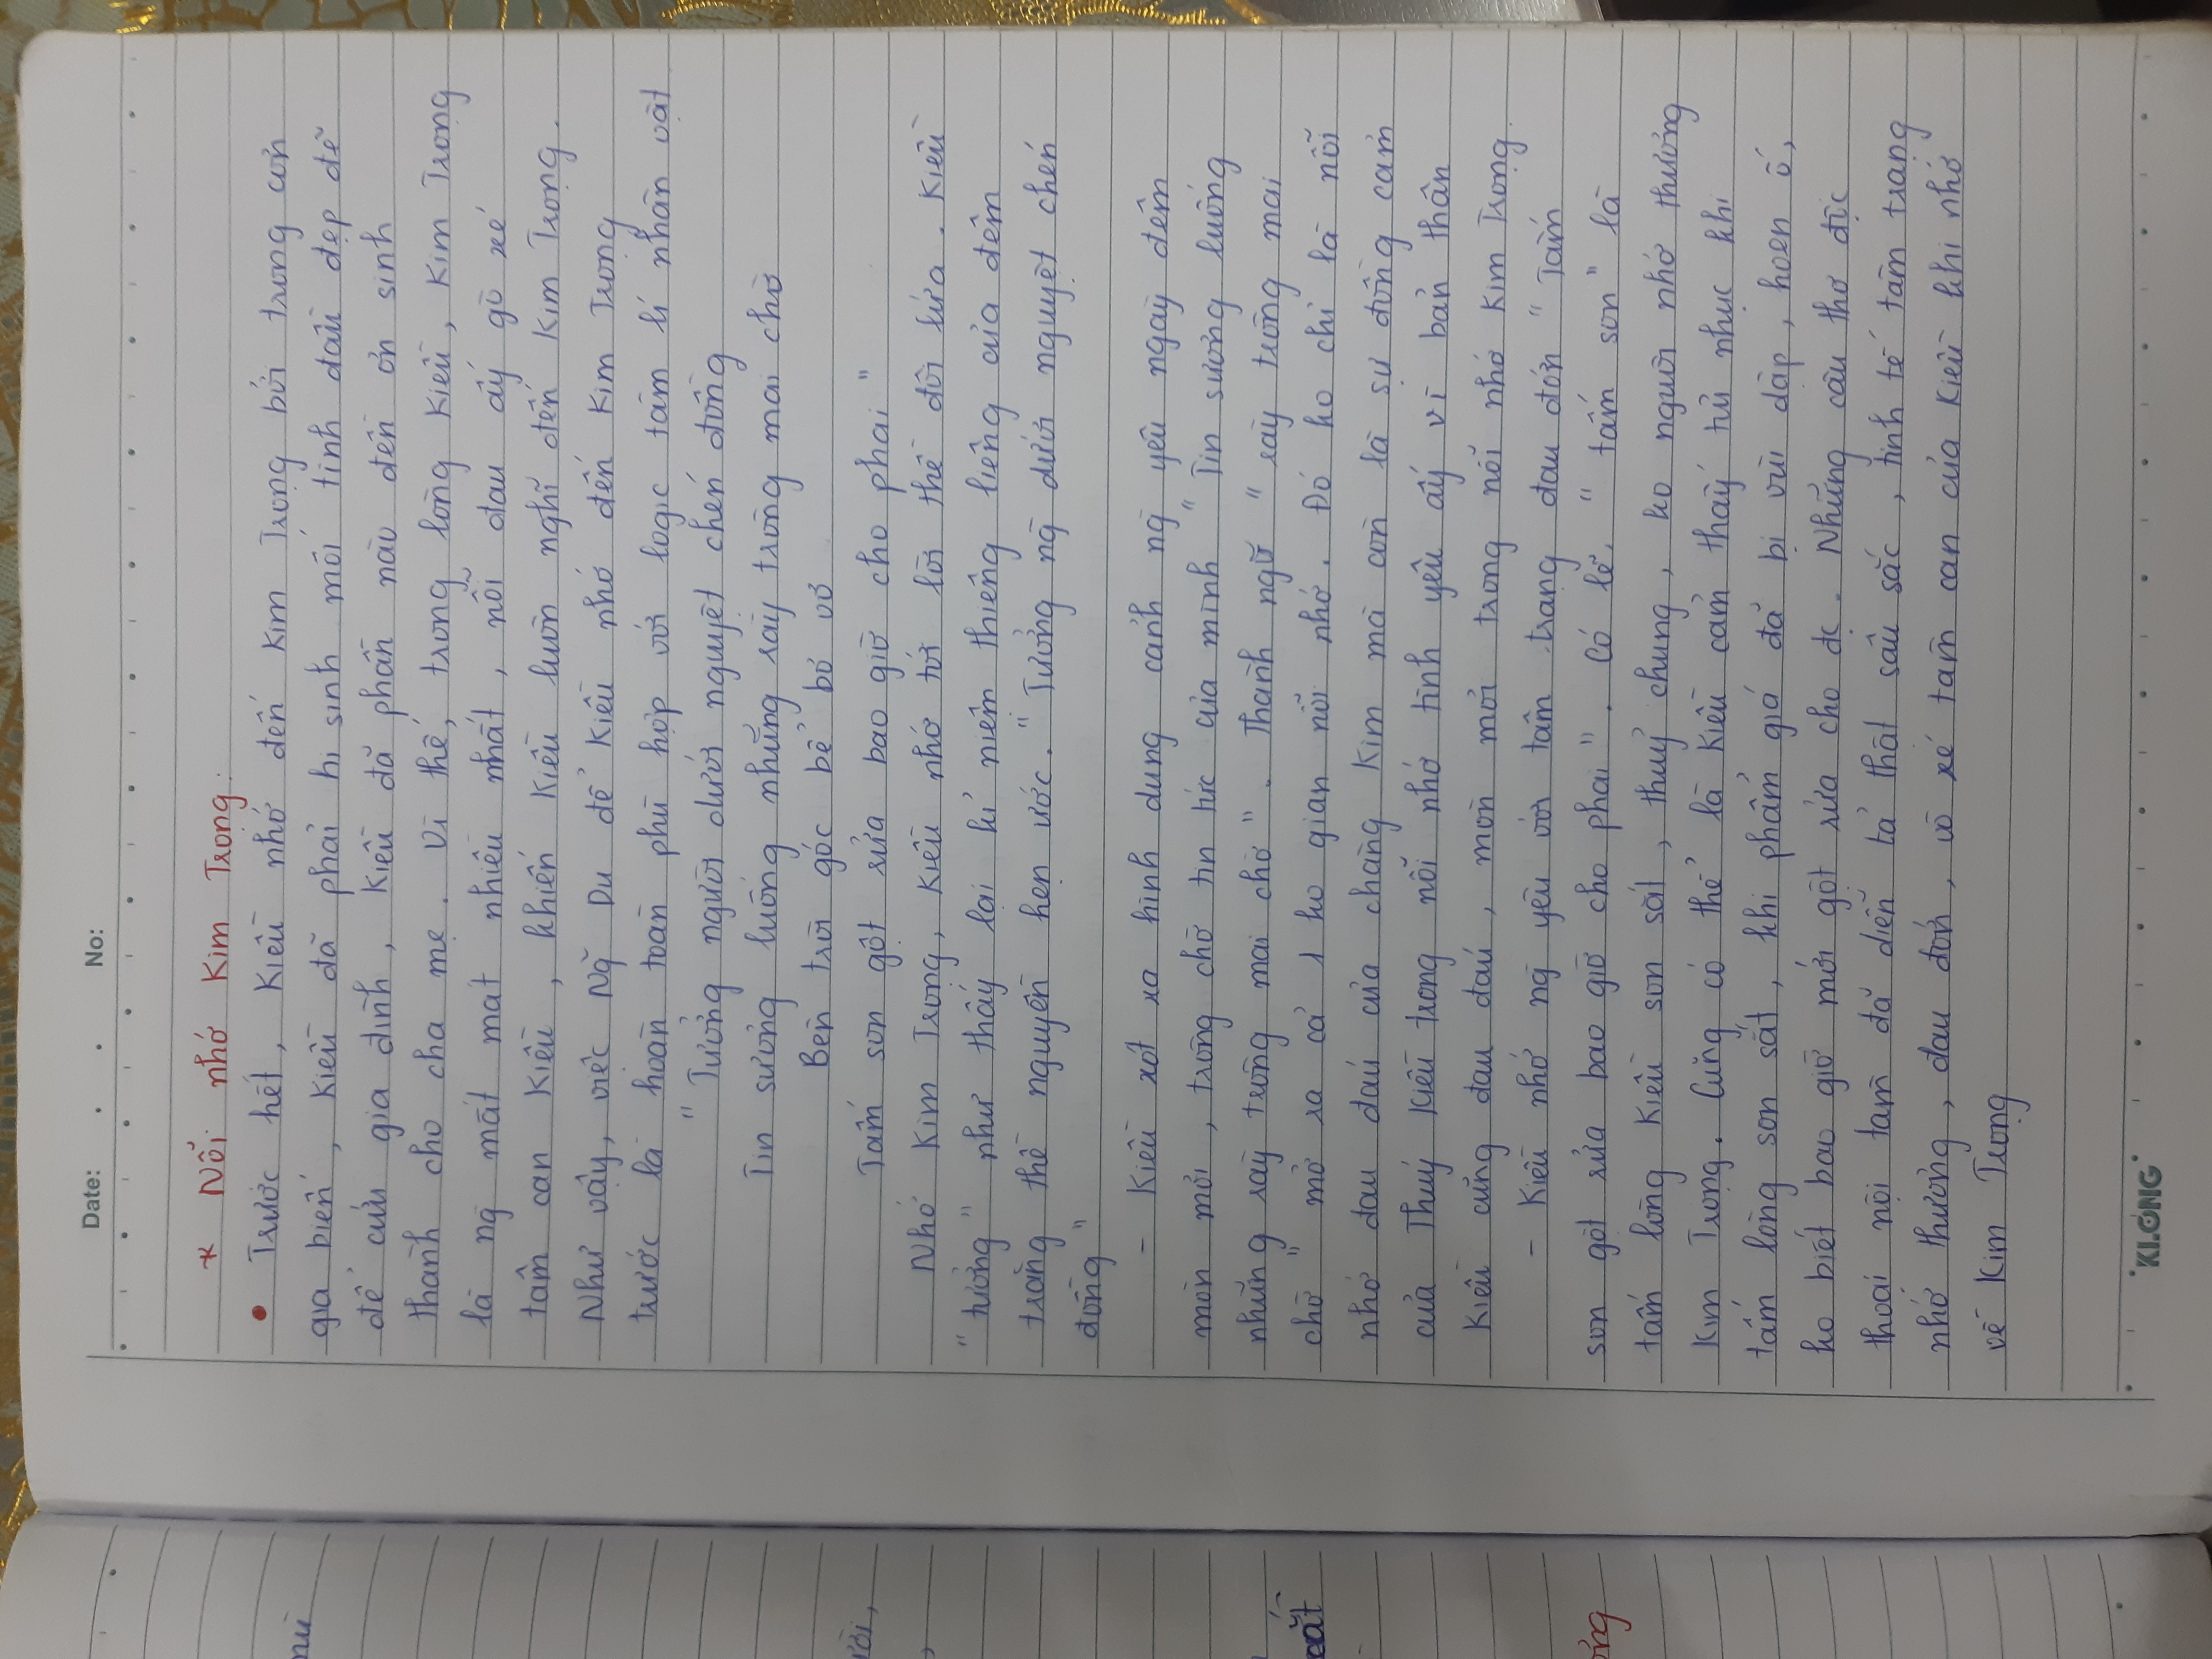 Date: . . No:
* Nỗi nhớ Kim Trọng:
• Trước hết, Kiều nhớ đến Kim Trọng bởi trong cơn
gia biến, Kiều đã phải hi sinh mối tình đầu đẹp đẽ
để cứu gia đình, Kiều đã phần nào đền ơn sinh
thành cho cha mẹ. Vì thế, trong lòng Kiều, Kim Trọng
là ng̀ mất mát nhiều nhất, nỗi đau ấy giò xé
tâm can Kiều, khiến Kiều luôn nghĩ đến Kim Trọng.
Như vậy, việc Ng̃ Du để Kiều nhớ đến Kim Trọng
trước là hoàn toàn phù hợp với logic tâm lí nhân vật
"Tưởng người dưới nguyệt chén đồng
Tin sương luống những rày trông mai chờ
Bên trời góc bể bơ vơ
Tấm son gột rửa bao giờ cho phai"
Nhớ Kim Trọng, Kiều nhớ tới lời thề đôi lứa. Kiều
"tưởng" như thấy lại kỉ niệm thiêng liêng của đêm
trăng thề nguyền hẹn ước. "Tưởng ng̀ dưới nguyệt chén
đồng"
- Kiều xót xa hình dung cảnh ng̀ yêu ngày đêm
mòn mỏi, trông chờ tin tức của mình "Tin sương luống
những rày trông mai chờ". Thành ngữ "rày trông mai
chờ" mở ra cả 1 ko gian nỗi nhớ. Đó ko chỉ là nỗi
nhớ đau đáu của chàng Kim mà còn là sự đồng cảm
của Thuý Kiều trong nỗi nhớ tình yêu ấy vì bản thân
Kiều cũng đau đáu, mòn mỏi trong nỗi nhớ Kim Trọng.
- Kiều nhớ ng̀ yêu với tâm trạng đau đớn "Tấm
son gột rửa bao giờ cho phai". Có lẽ, "tấm son" là
tấm lòng Kiều son sắt, thuỷ chung, ko nguôi nhớ thương
Kim Trọng. Cũng có thể là Kiều cảm thấy tủi nhục khi
tấm lòng son sắt, khi phẩm giá đã bị vùi dập, hoen ố,
ko biết bao giờ mới gột rửa cho đc. Những câu thơ độc
thoại nội tâm đã diễn tả thật sâu sắc, tinh tế tâm trạng
nhớ thương, đau đớn, vò xé tâm can của Kiều khi nhớ
về Kim Trọng
KLONG
nữ
rời,
cất
ởng